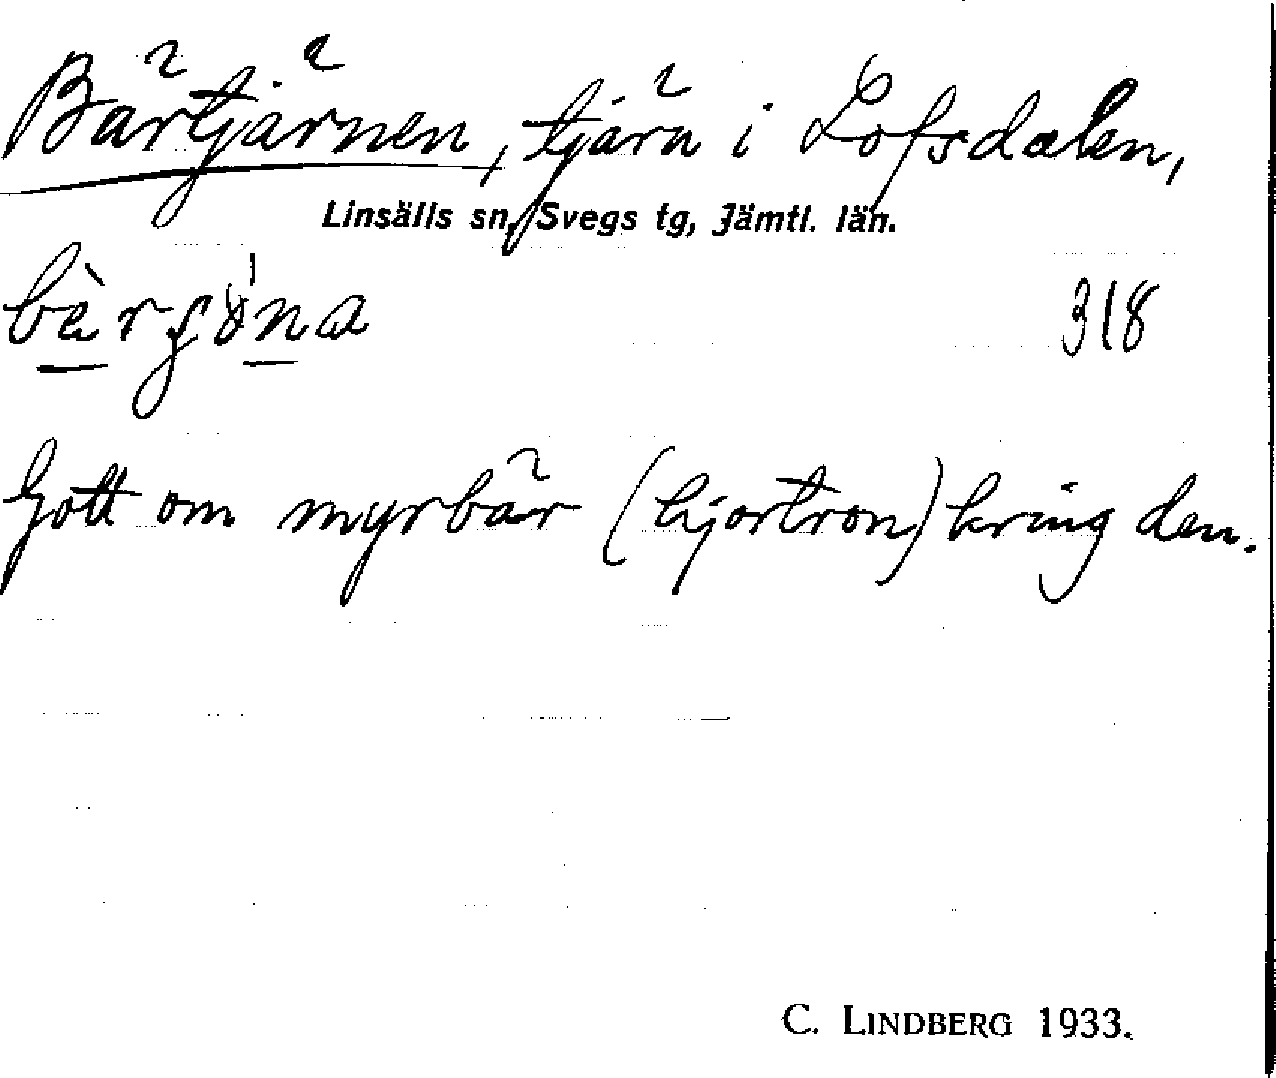 Bärtjärnen, tjärn i Lofsdalen,
Linsälls sn, Svegs tg, Jämtl. län.
318
Gott om myrbär (hjortron) kring den.
C. LINDBERG 1933.